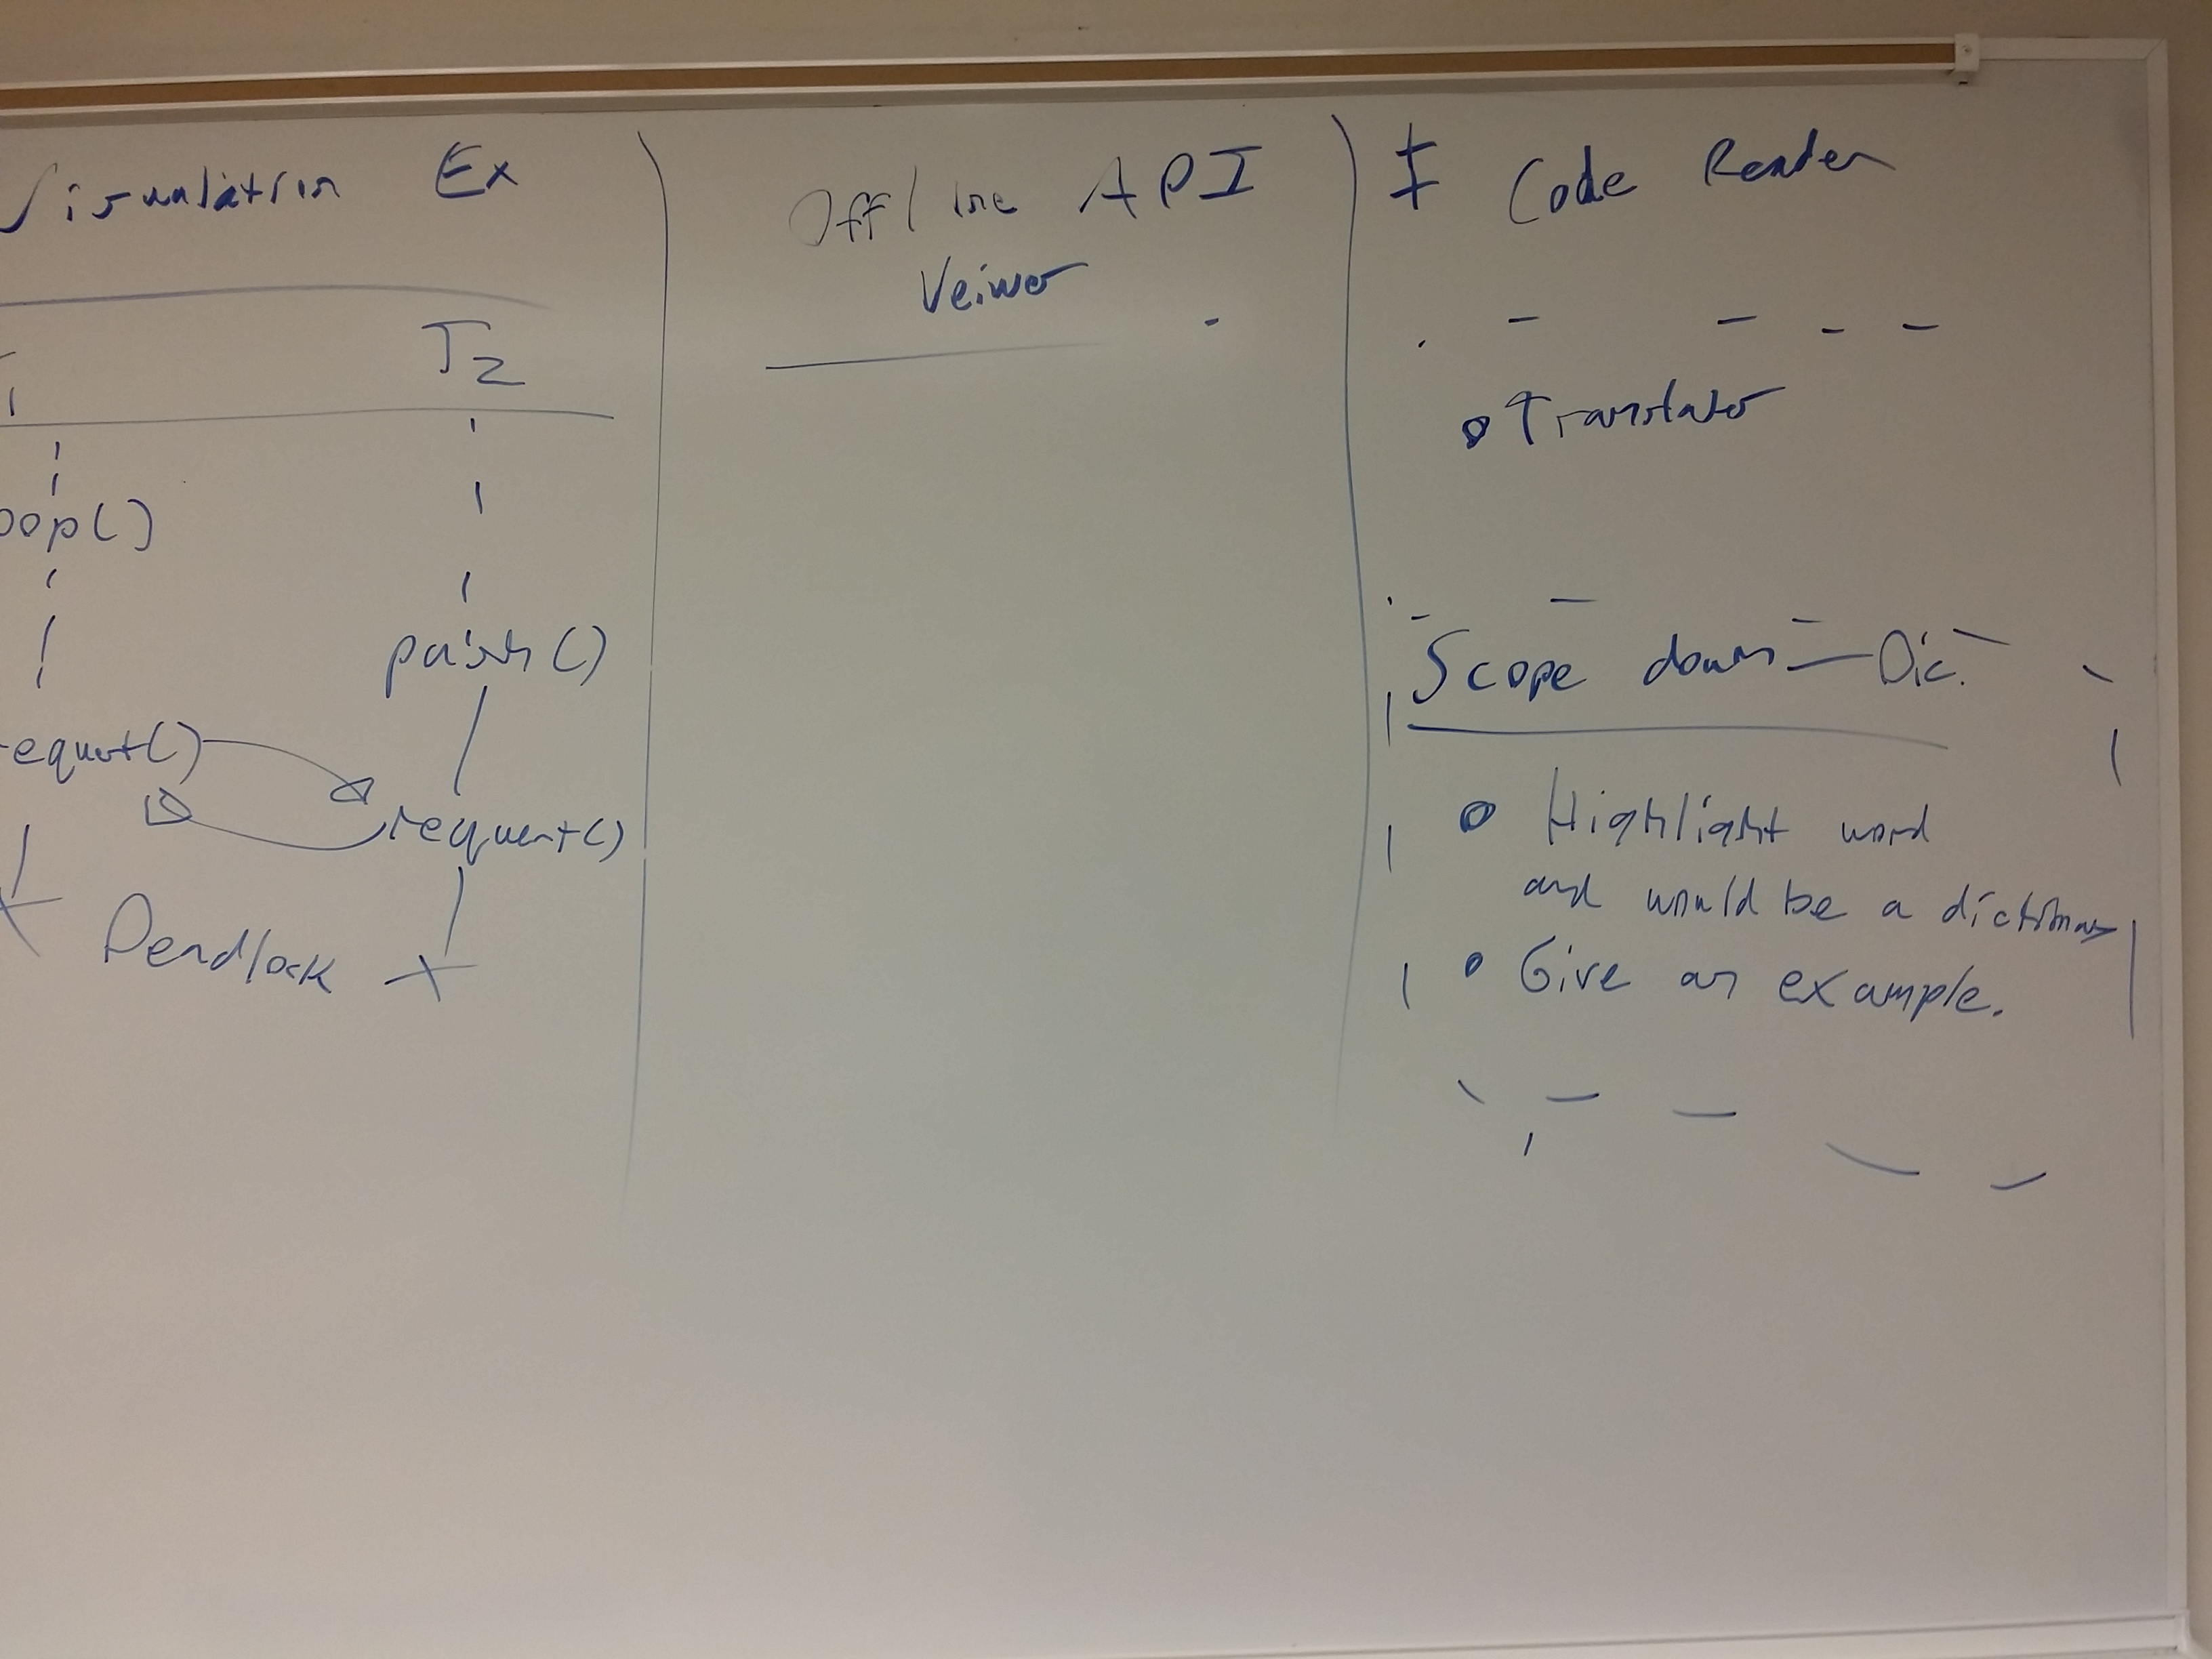 Visualation Ex
T2
pop()
push()
request()
request()
Deadlock
Offline API
Veiwer
Code Reader
Translator
Scope down - Dic.
Highlight word
and would be a dictionary
Give an example.